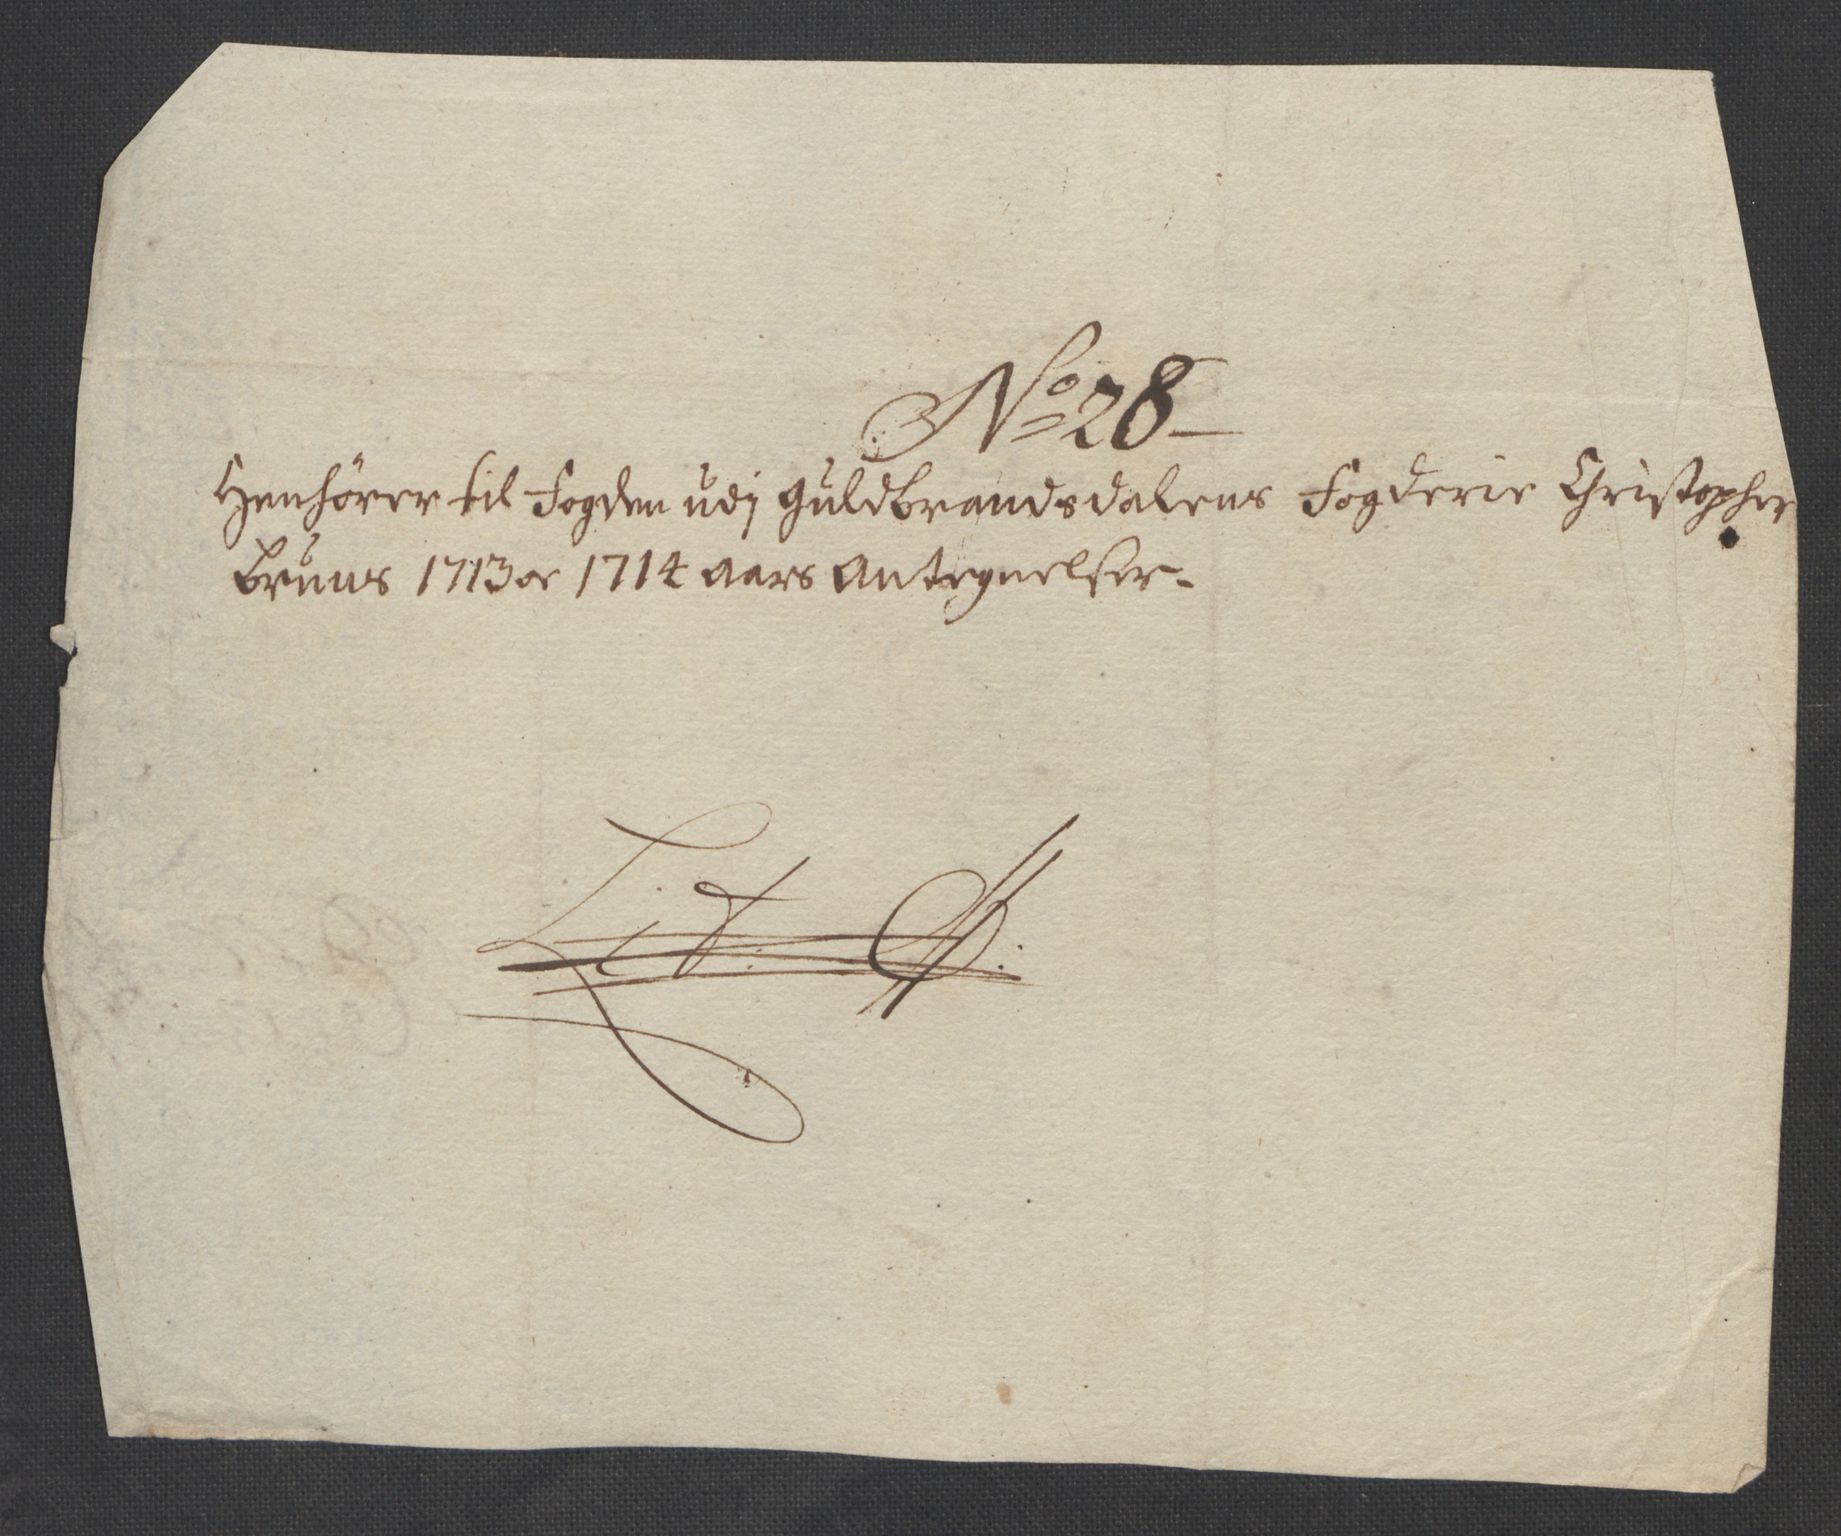 No 28
Henhörer til Fogden udj Guldbrandsdalens Fogderie Christopher
Bruns 1713 oc 1714 aars Antegnelser.
Lit: